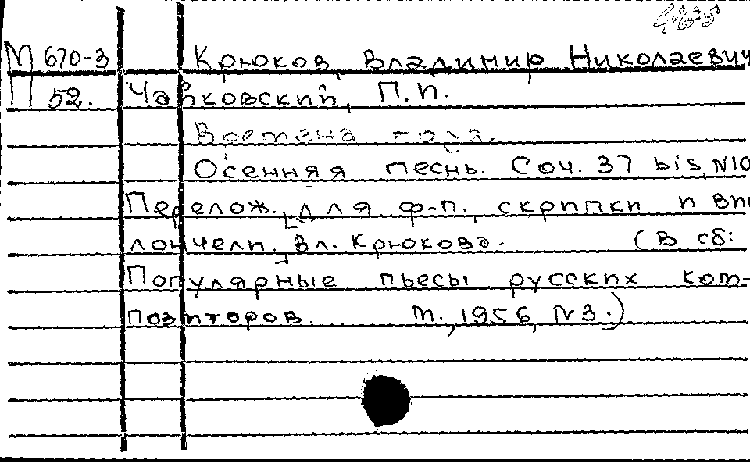 М 670-3 Крюков, Владимир Николаевич
П 52. Чайковский, П.И.
Времена года.
Осенняя песнь. Соч. 37 bis, N10
Перелож. для ф-п., скрипки и вио
лончели, Вл. Крюкова. (В сб:
Популярные пьесы русских ком-
позиторов. М., 1956, N3.)